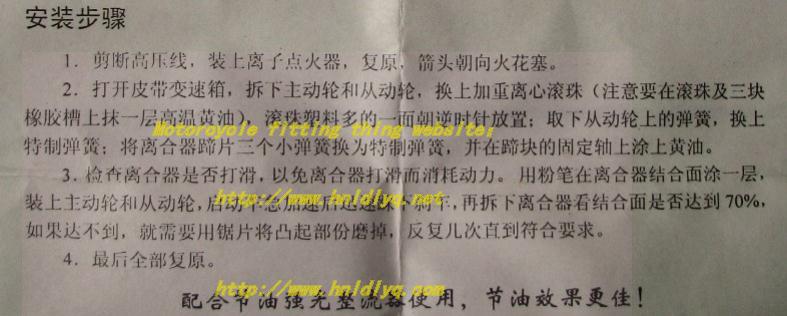 安装步骤
1. 剪断高压线，装上离子点火器，复原，箭头朝向火花塞。
2. 打开皮带变速箱，拆下主动轮和从动轮，换上加重离心滚珠（注意要在滚珠及三块
橡胶槽上抹一层高温黄油），滚珠塑料多的一面朝逆时针放置；取下从动轮上的弹簧，换上
Motoroyole fitting thing website:
特制弹簧；将离合器蹄片三个小弹簧换为特制弹簧，并在蹄块的固定轴上涂上黄油。
3. 检查离合器是否打滑，以免离合器打滑而消耗动力。用粉笔在离合器结合面涂一层，
http://www.hnldlyq.net
装上主动轮和从动轮，启动车急加速后迅速踩下刹车，再拆下离合器看结合面是否达到70%，
如果达不到，就需要用锯片将凸起部份磨掉，反复几次直到符合要求。
4. 最后全部复原。
http://www.hnldlyq.net
配合节油强光整流器使用，节油效果更佳！